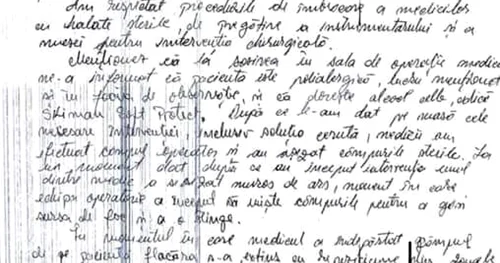 Am respectat procedurile de îmbrăcare a medicilor
cu halate sterile, de pregătire a instrumentarului și a
mesei pentru intervenția chirurgicală.
Menționez că la sosirea în sala de operație medicul
ne-a informat că pacienta este polialergică, lucru menționat
și în foaia de observație, și că dorește alcool
Skinman Soft Protect. După ce le-am dat pe masă cele
necesare intervenției, inclusiv soluția cerută, medicii au
efectuat câmpul operator și au așezat câmpurile sterile. La
un moment dat după ce au început intervenția unul
dintre medici a sesizat miros de ars, moment în care
echipa operatorie a început să miște câmpurile pentru a găsi
sursa de foc și a o stinge.
În momentul în care medicul a îndepărtat câmpul
de pe pacientă flacăra s-a extins cu